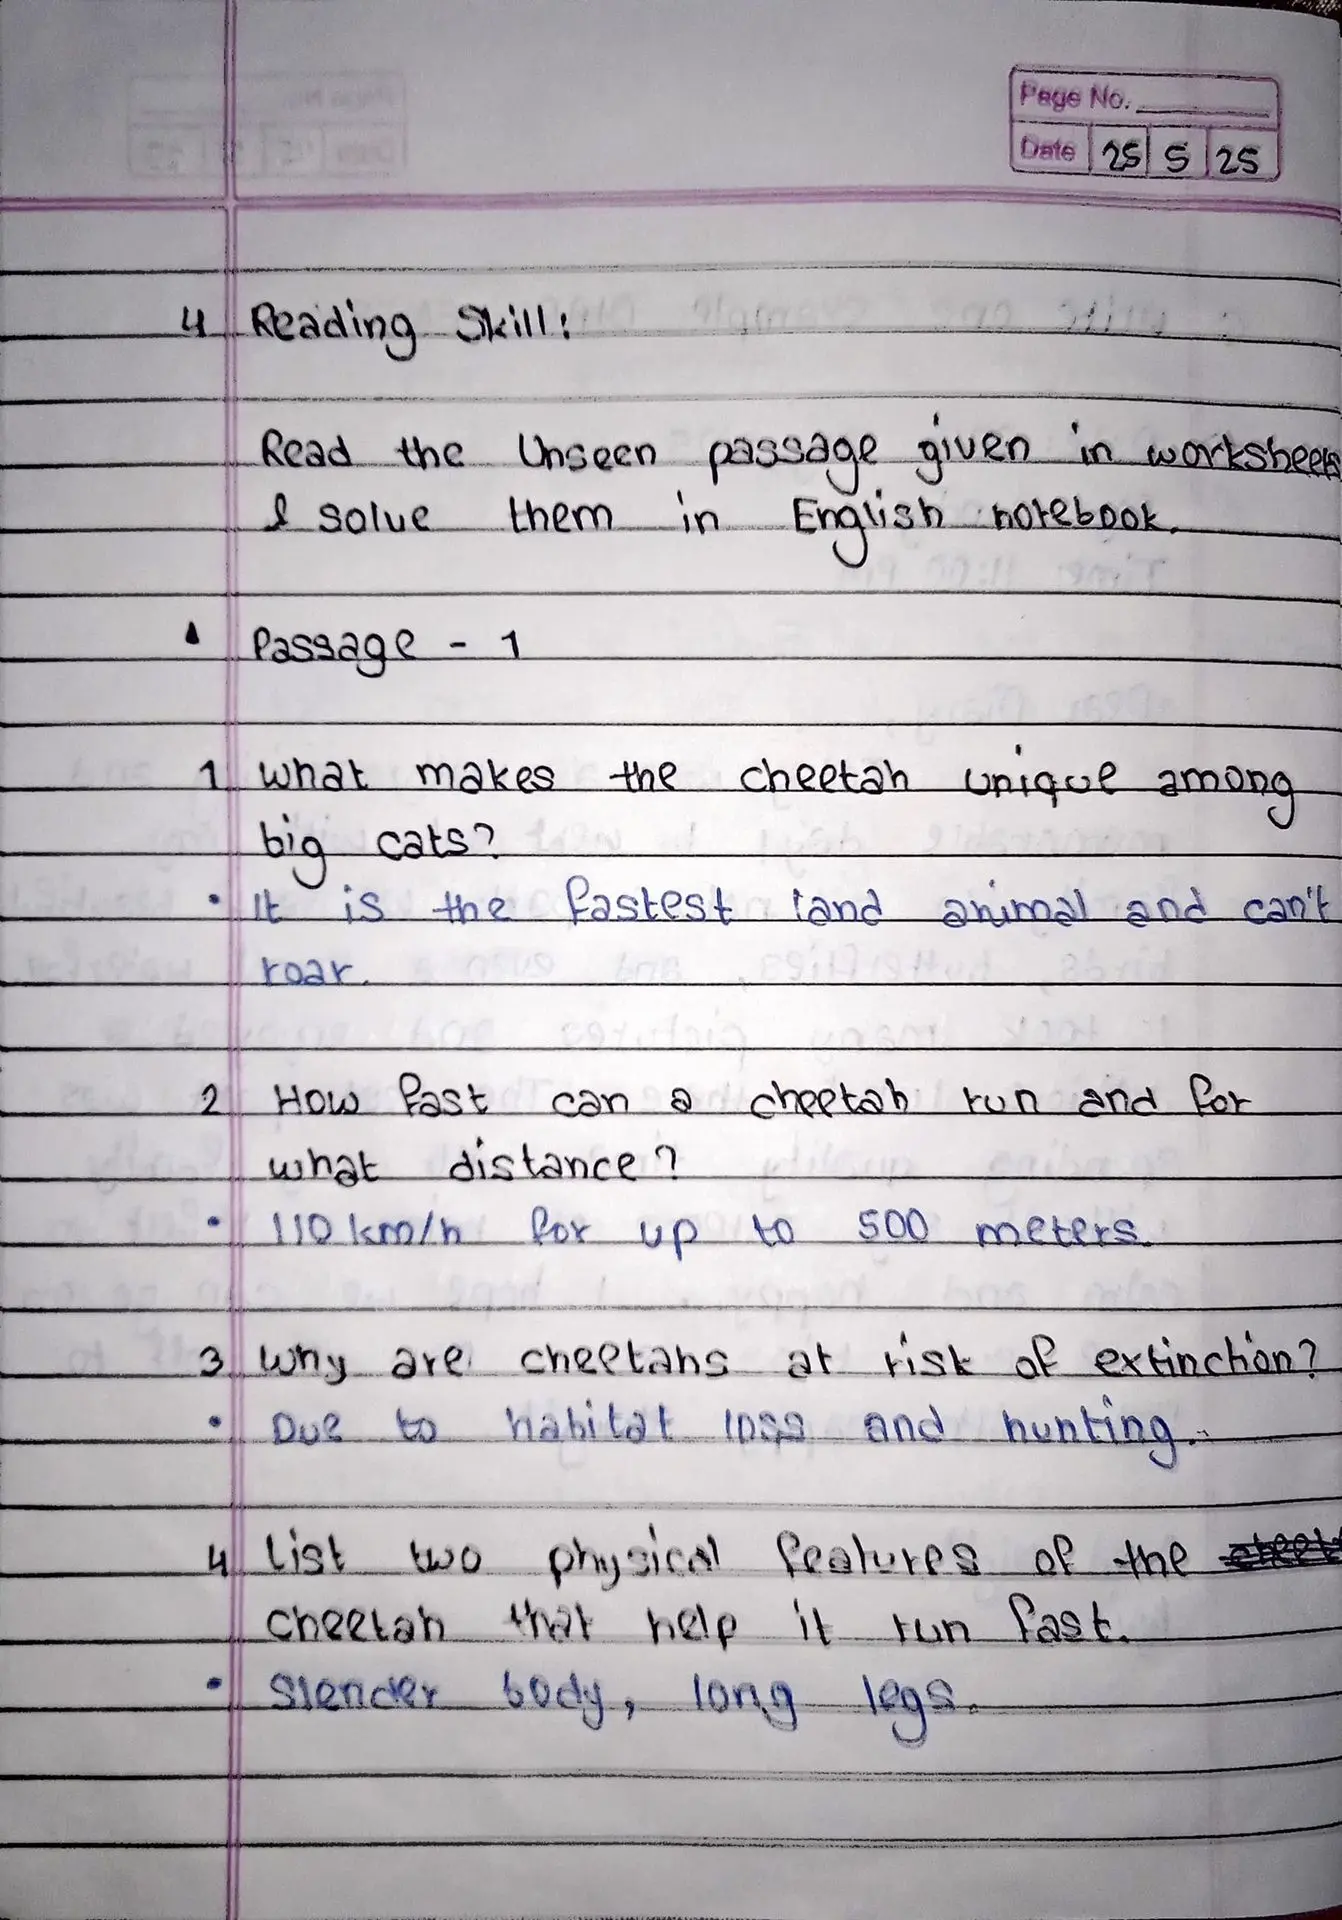 Page No.
Date 25 5 25
4 Reading Skill:
Read the Unseen passage given in worksheets
& solve them in English notebook.
Passage - 1
1 What makes the cheetah unique among
big cats?
• It is the fastest land animal and can't
roar.
2 How fast can a cheetah run and for
what distance?
• 110 km/h for up to 500 meters.
3 Why are cheetahs at risk of extinction?
• Due to habitat loss and hunting.
4 List two physical features of the
cheetah that help it run fast.
• Slender body, long legs.